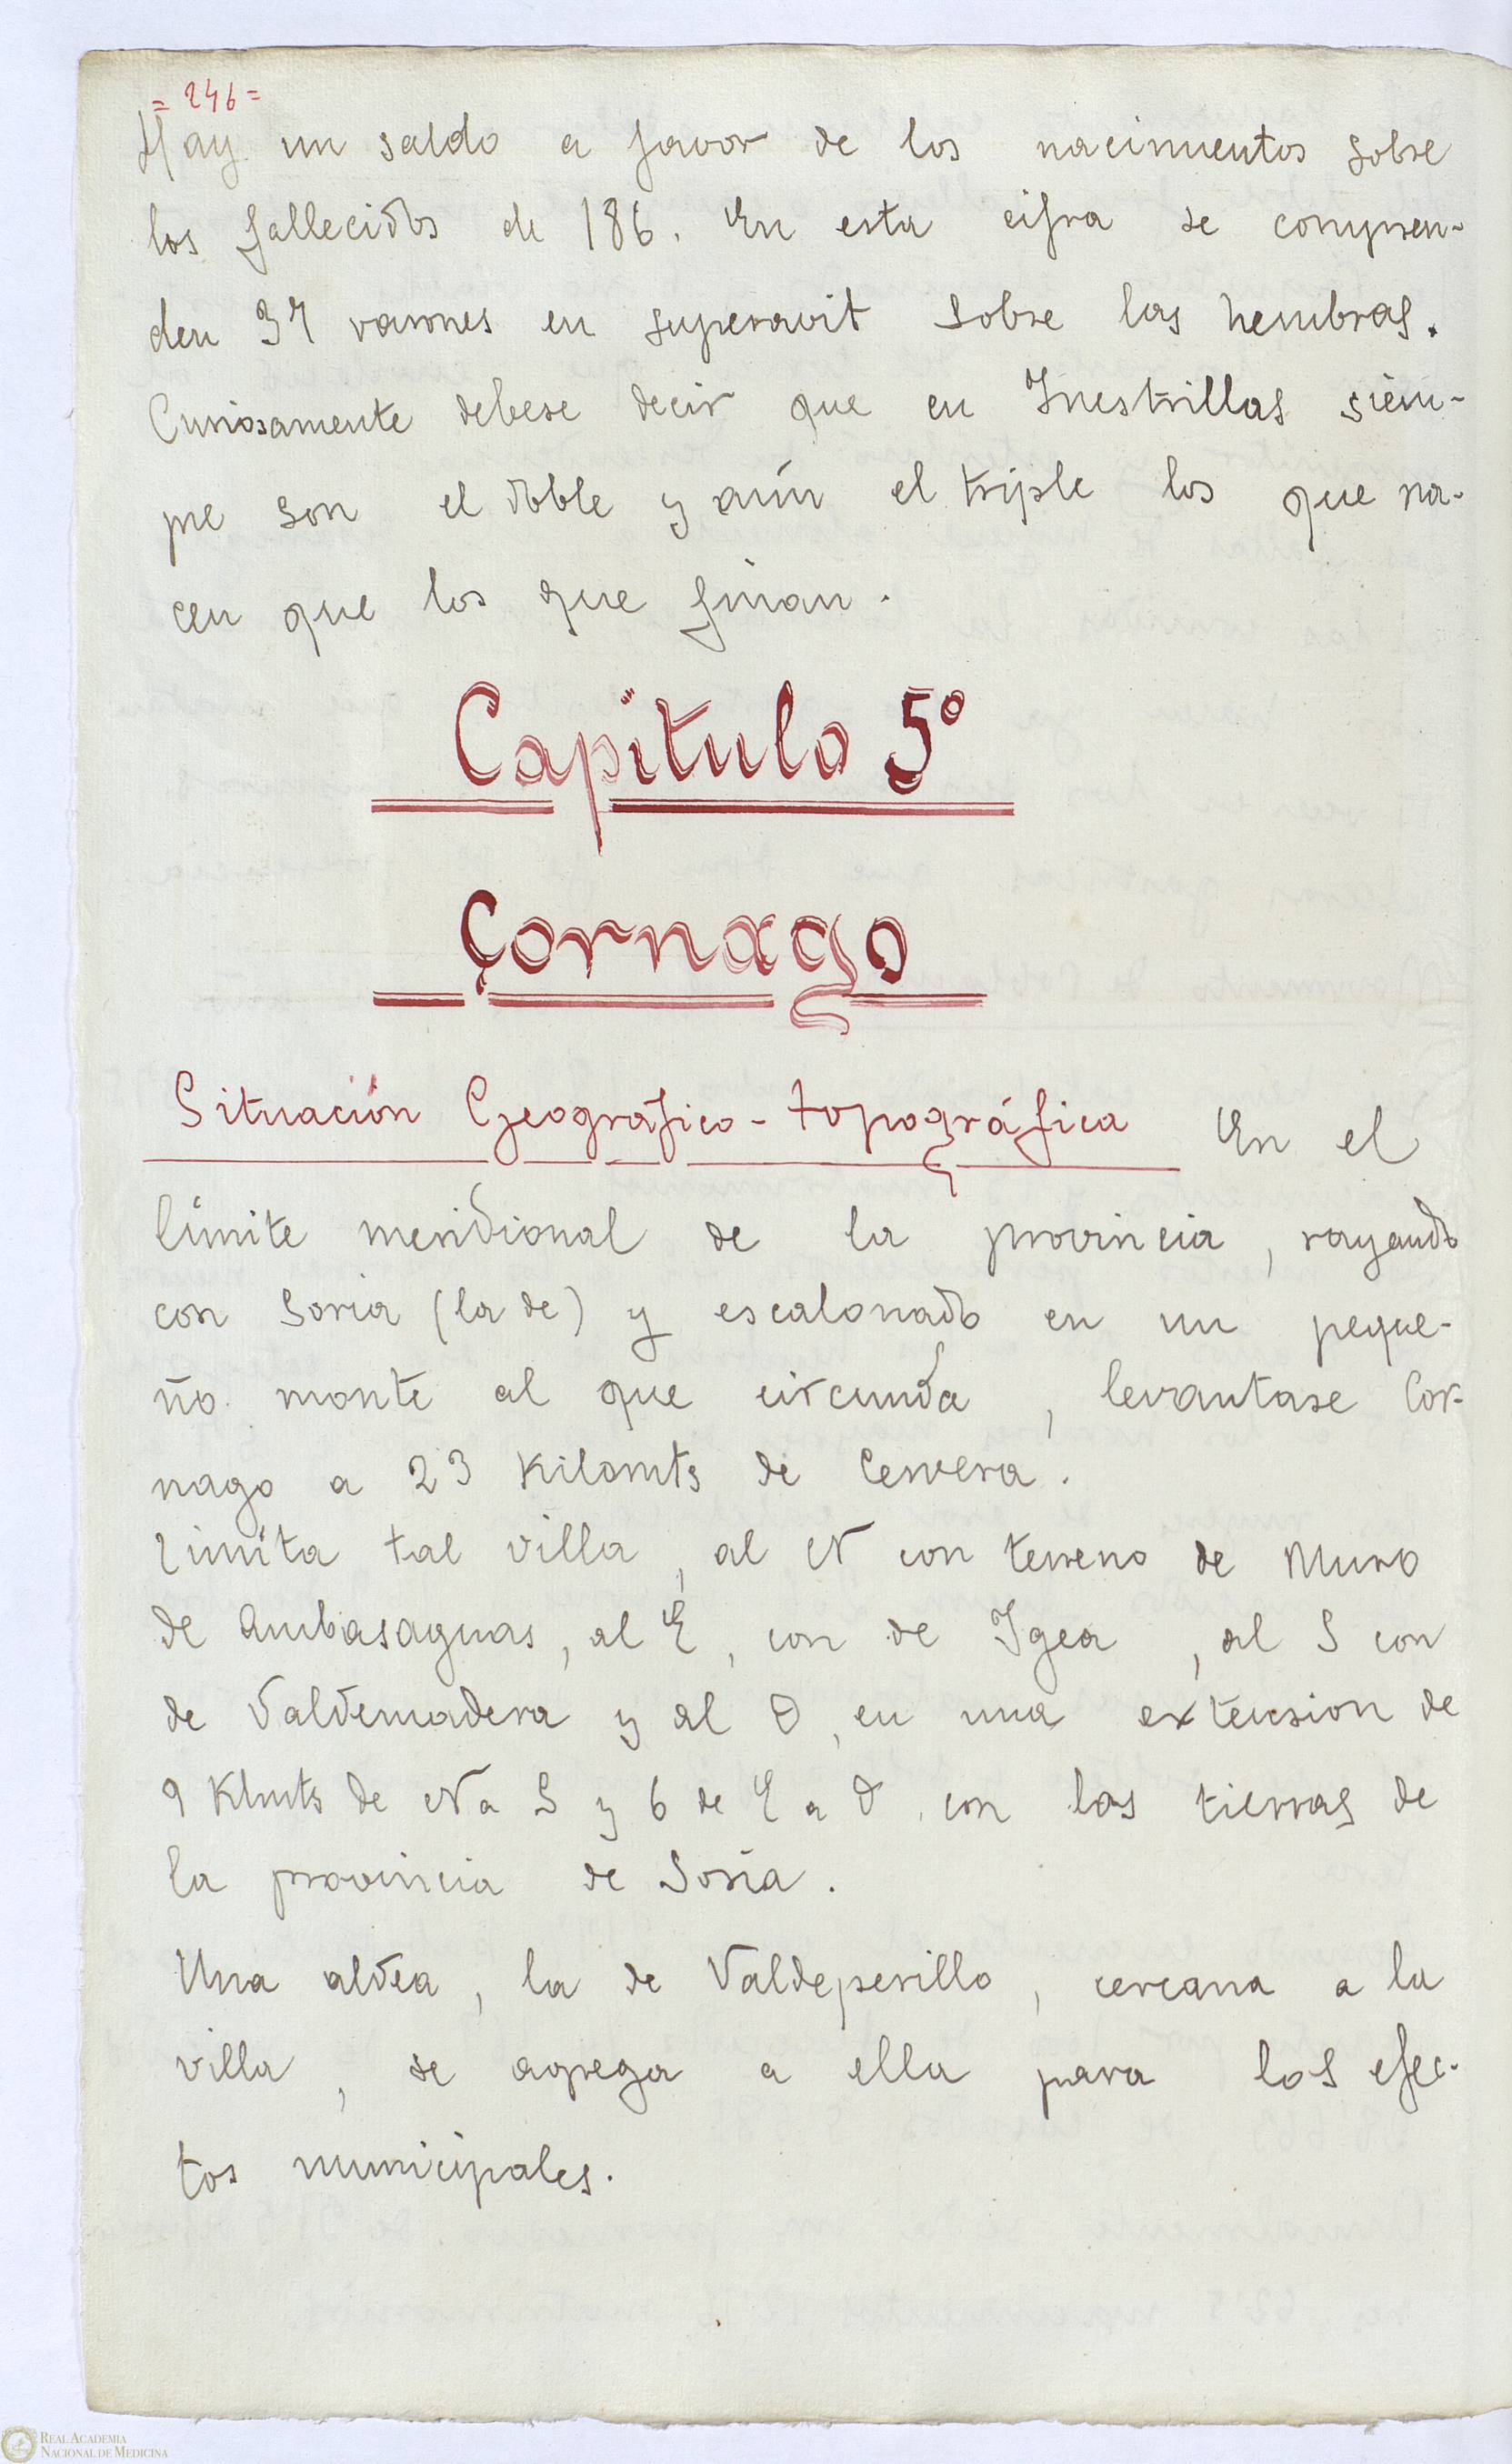 = 246 =
Hay un saldo a favor de los nacimientos sobre
los fallecidos de 186. En esta cifra se compren-
den 37 varones en superavit sobre las hembras.
Curiosamente debese decir que en Inestrillas siem-
pre son el doble y aún el triple los que na-
cen que los que finan.
Capítulo 5º
Cornago
Situación Geográfico-topográfica En el
límite meridional de la provincia, rayando
con Soria (la de) y escalonado en un peque-
ño monte al que circunda, levantase Cor-
nago a 23 Kilomts de Cervera.
Limita tal villa, al N con terreno de Muro
de Ambasaguas, al E, con de Igea, al S con
de Valdemadera y al O, en una extension de
9 Klmts de N a S y 6 de E a O, con las tierras de
la provincia de Soria.
Una aldea, la de Valdeperillo, cercana a la
villa, se agrega a ella para los efec-
tos municipales.
REAL ACADEMIA
NACIONAL DE MEDICINA